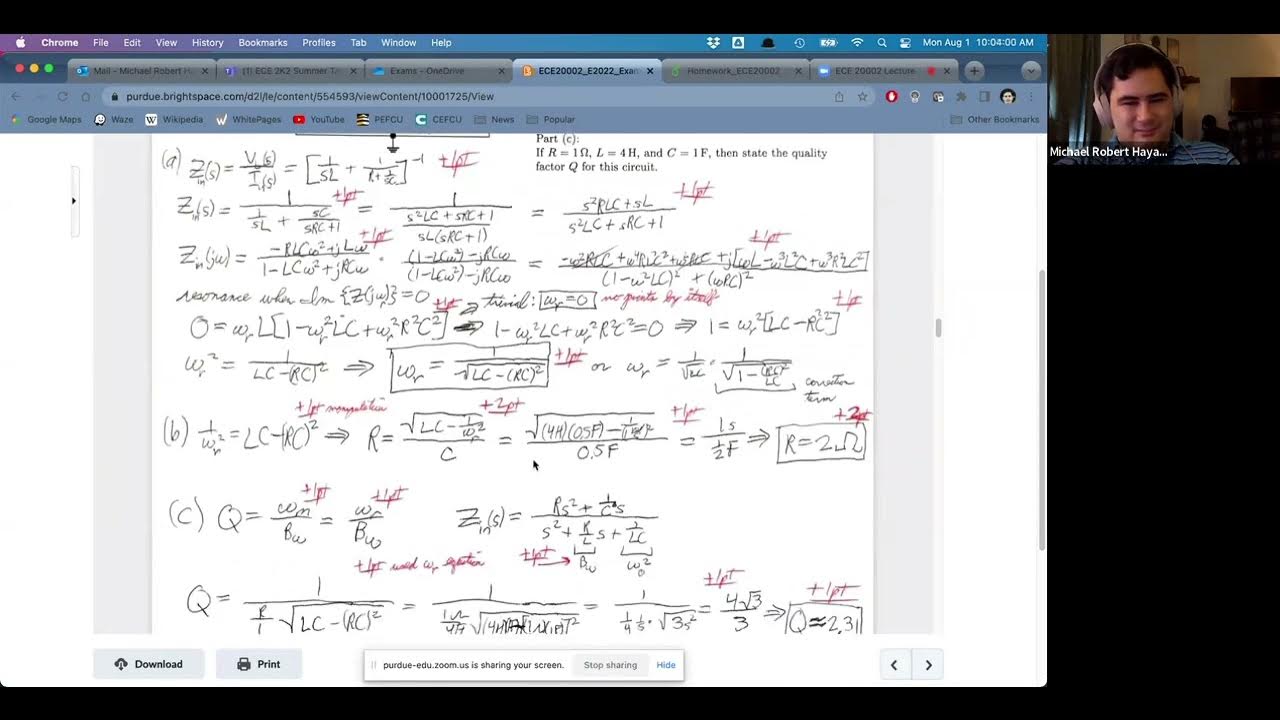 Chrome File Edit View History Bookmarks Profiles Tab Window Help Mon Aug 1 10:04:00 AM
Mail - Michael Robert H
(1) ECE 2K2 Summer T
Exams - OneDrive
ECE20002_E2022_Exa
Homework_ECE20002
ECE 20002 Lecture
purdue.brightspace.com/d2l/le/content/554593/viewContent/10001725/View
Google Maps Waze Wikipedia WhitePages YouTube PEFCU CEFCU News Popular Other Bookmarks
Michael Robert Haya...
Part (c):
If R = 1 Ω, L = 4 H, and C = 1 F, then state the quality
factor Q for this circuit.
(a) Z_in(s) = V_o(s)/I_i(s) = [1/sL + 1/(R + 1/sC)]^-1 +1pt
Z_in(s) = 1/(1/sL + sC/(sRC+1)) +1pt = 1/((s²LC + sRC + 1)/(sL(sRC+1))) = (s²RLC + sL)/(s²LC + sRC + 1) +1pt
Z_in(jω) = (-RLCω² + jLω)/(1 - LCω² + jRCω) +1pt · ((1-LCω²) - jRCω)/((1-LCω²) - jRCω) = +1pt
(1-ω²LC)² + (ωRC)²
resonance when Im {Z(jω_r)} = 0 +1pt ⇒ trivial: ω_r = 0 no points by itself +1pt
0 = ω_r L[1 - ω_r²LC + ω_r²R²C²] ⇒ 1 - ω_r²LC + ω_r²R²C² = 0 ⇒ 1 = ω_r²[LC - R²C²]
ω_r² = 1/(LC - (RC)²) ⇒ ω_r = 1/√(LC - (RC)²) +1pt or ω_r = 1/√LC · 1/√(1 - (RC)²/LC) correction
term
+1pt manipulation +2pt +1pt +2pt
(b) 1/ω_r² = LC - (RC)² ⇒ R = √(LC - 1/ω_r²)/C = 0.5F = 1s/(½F) ⇒ R = 2Ω
+1pt +1pt
(c) Q = ω_m/B_ω = ω_r/B_ω Z_in(s) = (Rs² + 1/C s)/(s² + R/L s + 1/LC)
+1pt used ω_r equation +1pt → B_ω ω_0²
+1pt +1pt
Q = 1/(R/L √(LC - (RC)²)) = = 1/(1/4 1/s · √3s²) = 4√3/3 ⇒ Q ≈ 2.31
Download Print
purdue-edu.zoom.us is sharing your screen. Stop sharing Hide